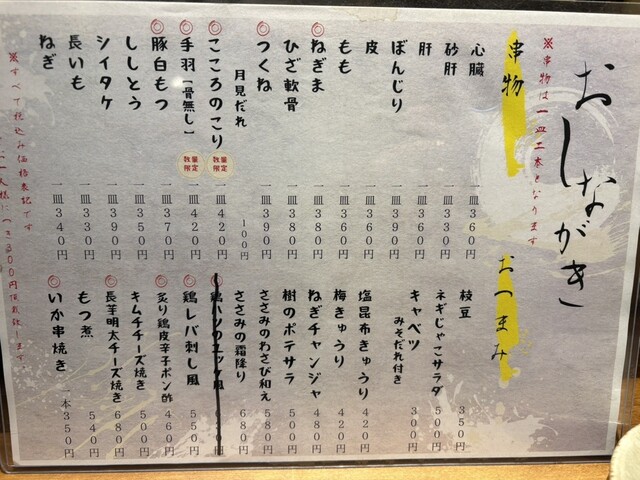 おしながき
※串物は一皿二本となります
串物
心臓 一皿360円
砂肝 一皿330円
肝 一皿330円
ぼんじり 一皿390円
皮 一皿360円
もも 一皿360円
ねぎま 一皿420円
ひざ軟骨 一皿380円
つくね 一皿390円
月見だれ 100円
こころのこり 数量限定 一皿420円
手羽[骨無し] 数量限定 一皿420円
豚白もつ 一皿370円
ししとう 一皿350円
シイタケ 一皿390円
長いも 一皿330円
ねぎ 一皿340円
おつまみ
枝豆 350円
ネギじゃこサラダ 500円
キャベツ みそだれ付き 300円
塩昆布きゅうり 420円
梅きゅうり 420円
ねぎチャンジャ 480円
樹のポテサラ 500円
ささみのわさび和え 580円
ささみの霜降り 680円
鶏ハツのユッケ風
鶏レバ刺し風 550円
炙り鶏皮辛子ポン酢 460円
キムチチーズ焼き 500円
長芋明太チーズ焼き 680円
もつ煮 540円
いか串焼き 一本350円
※すべて税込み価格表記です